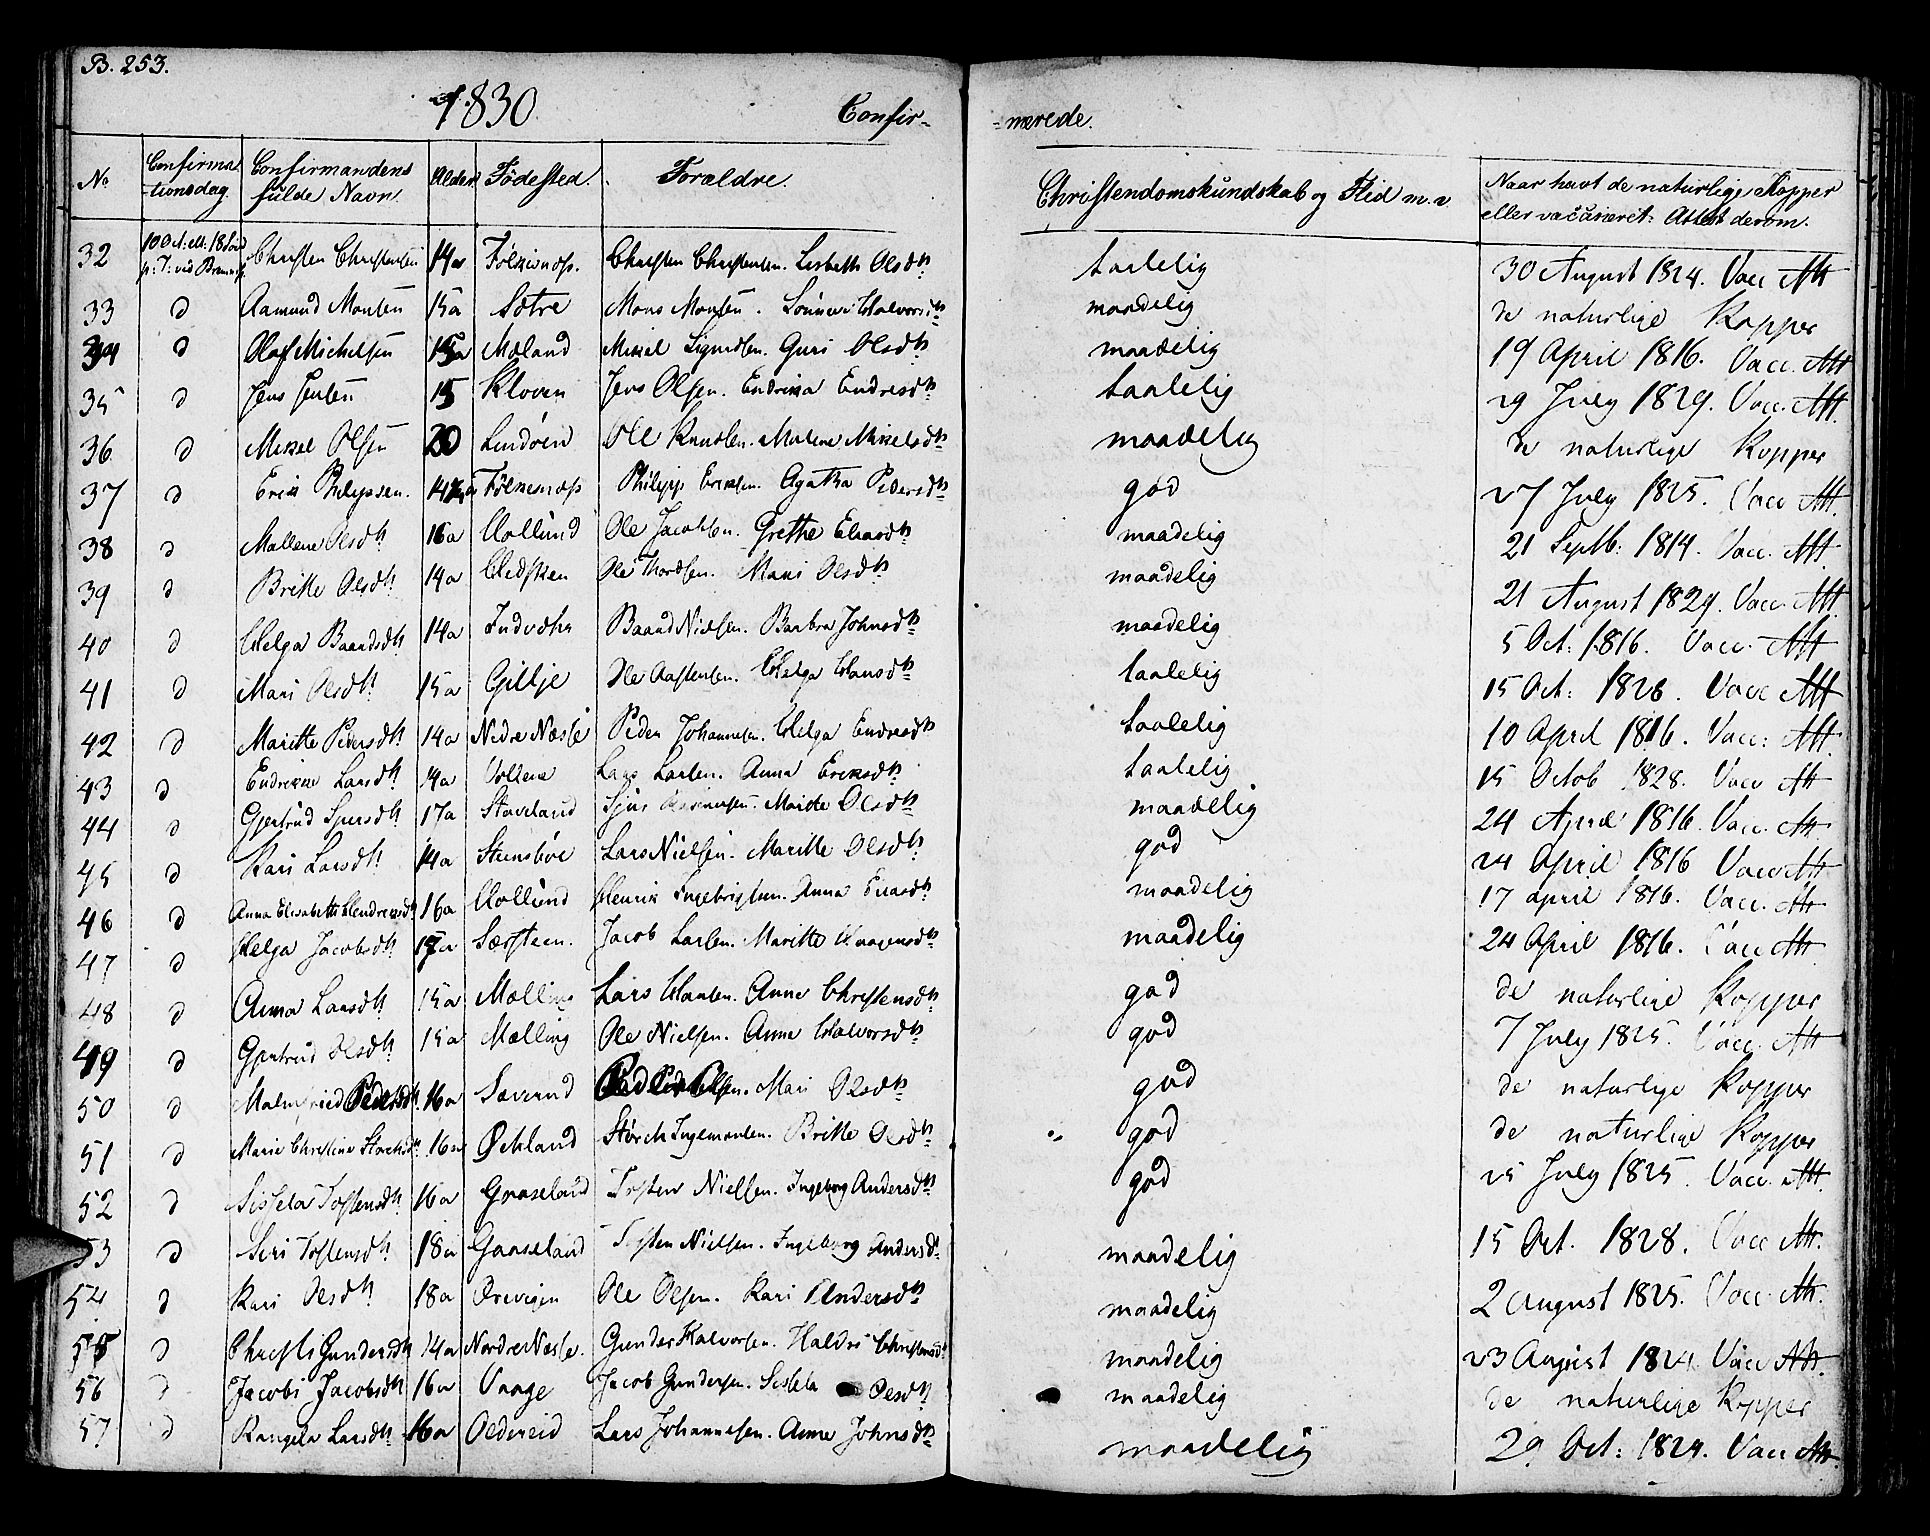 B. 253.
1830. Confir- -merede.
No Confirma -tionsdag. Confirmandens fulde Navn Alder Fødested. Forældre. Christendomskundskab og Flid m.v. Naar havt de naturlige Kopper eller vaccineret: Attest derom.
32 10 Oct: 18 Christen Christensen 14a Christen Christensen. Lisbeth Olsdtr taalelig 30 August 1824. Vacc Att
33 d Aamund Monsen 15a Sætre Mons Monsen. Halvorsdtr maadelig de naturlige Kopper
34 d Olaf Michelsen 15a Mæland Mikkel Sigurdsen. Guri Olsdtr maadelig 19 April 1816. Vacc. Att
35 d Jens Jensen 15 Kloven Jens Olsen. Endrikka Endresdtr taalelig 29 July 1829. Vacc. Att.
36 d Mikkel Olsen 20 Lindøen Ole Knudsen. Malene Mikkelsdtr maadelig de naturlige Kopper
37 d Erik Philipsen. 14 Philipp Eriksen. Agatha Pedersdtr god 27 July 1825. Vacc Att.
38 d Mallene Olsdtr 16a Hollund Ole Jacobsen. Grethe Eliasdtr maadelig 21 Septb: 1814. Vacc. Att.
39 d Britte Olsdtr 14a Ole Thordsen. Mari Olsdtr maadelig 21 August 1829. Vacc. Att
40 d Helga Baardsdtr 14a Baard Nielsen. Barbra Johnsdtr maadelig 5 Oct: 1816. Vacc. Att
41 d Mari Olsdtr 15a Gillje Ole Aastensen. Helga Hansdtr taalelig 15 Oct: 1828. Vacc Att
42 d Maritte Pedersdtr 14a Nedre Næsse Peder Johannesen. Helga Endresdtr taalelig 10 April 1816. Vacc: Att.
43 d Endrikke Larsdtr 14a Vollene Lars Larsen. Anna Eriksdtr taalelig 15 Octob 1828. Vacc Att
44 d Gjertrud Sjursdtr 17a Staveland Sjur Maritte Olsdtr maadelig 24 April 1816. Vacc. Att
45 d Kari Larsdtr 14a Stensbøe Lars Nielsen. Maritte Olsdtr god 24 April 1816 Vacc Att
46 d Anna Elisabeth Hendriksdtr 16a Hollund Henrik Ingebrigtsen. Anna Eliasdtr maadelig 17 april 1816. Vacc. Att
47 d Helga Jacobsdtr 17a Særsteen. Jacob Larsen. Maritte Haagensdtr maadelig 24 April 1816. Vacc Att
48 d Anna Larsdtr 15a Mælling Lars Hansen. Anne Christensdtr god de naturlige Kopper
49 d Gjertrud Olsdtr 15a Mælling Ole Nielsen. Anne Halvorsdtr god 7 July 1825. Vacc. Att
50 d Malmfried Pedersdtr 16a Sævrand Mari Olsdtr god de naturlige Kopper
51 d Marie Christine Størchsdtr 16a Økland Størch Ingemonsen. Britte Olsdtr god de naturlige Kopper
52 d Sissela Tostensdtr 16a Gaaseland Tosten Nielsen. Ingeborg Andersdtr god 25 July 1825. Vacc. Att.
53 d Siri Tostensdtr 18a Gaaseland Tosten Nielsen. Ingeborg Andersdtr maadelig 15 Oct. 1828. Vacc Att.
54 d Kari Olsdtr 18a Ørevigen Ole Olsen. Kari Andersdtr maadelig 2 august 1825. Vacc. Att.
55 d Christi Gundersdtr 14a Nordre Næsse. Gunder Halvorsen. Haldis Christensdtr maadelig 23 August 1824. Vacc Att.
56 d Jacobi Jacobsdtr 16a Vaage Jacob Gundersen. Sissela Olsdtr maadelig de naturlige Kopper
57 d Rangela Larsdtr 16a Oldereid Lars Johannesen. Anne Johnsdtr maadelig 29 Oct: 1824. Vacc Att.